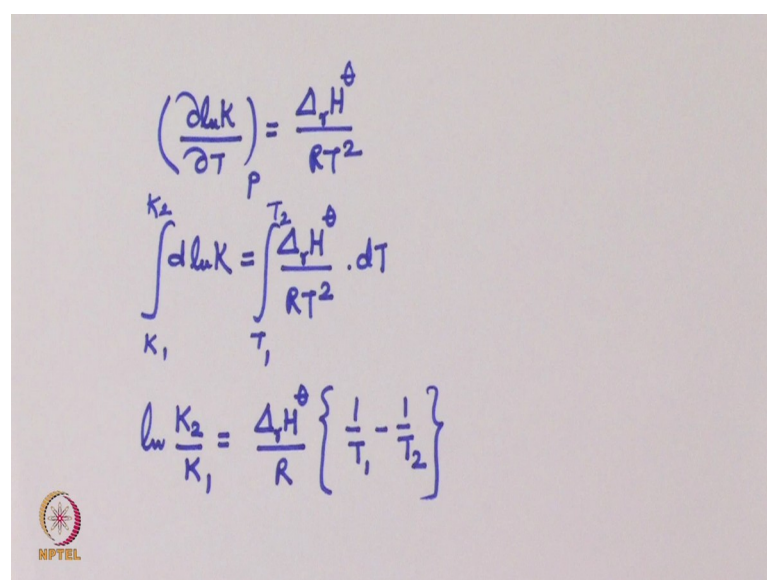 (∂lnK/∂T)_P = Δ_rH^θ/RT²
∫_{K₁}^{K₂} d lnK = ∫_{T₁}^{T₂} Δ_rH^θ/RT² . dT
ln K₂/K₁ = Δ_rH^θ/R {1/T₁ - 1/T₂}
NPTEL